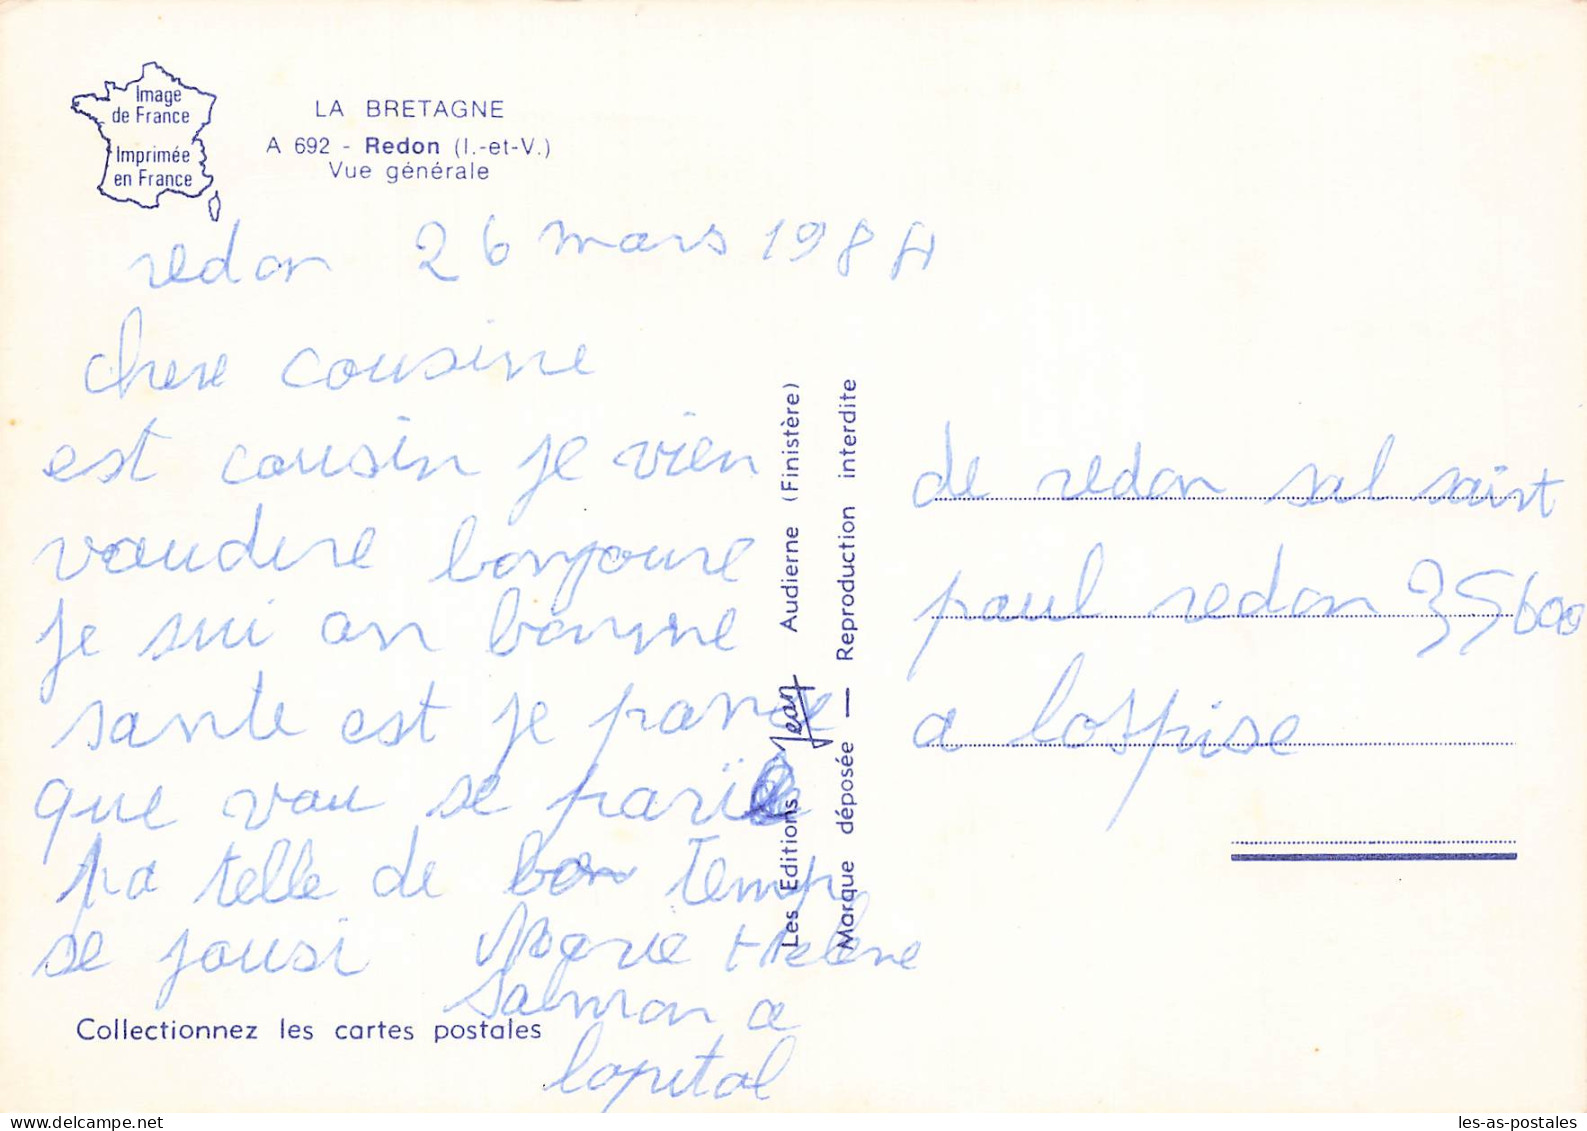 Image
de France
Imprimée
en France
LA BRETAGNE
A 692 - Redon (I.-et-V.)
Vue générale
redon 26 mars 1984
chere cousine
est cousin je vien
vaudire bonjoure
je sui an bonne
sante est je panse
que vau se parie
pa telle de bon temp
se jousi Marie Helene
Salmon a
lopital
Collectionnez les cartes postales
Les Editions Jean Audierne (Finistère)
Marque déposée — Reproduction interdite
de redon sal saint
paul redon 35600
a lospise
les-as-postales